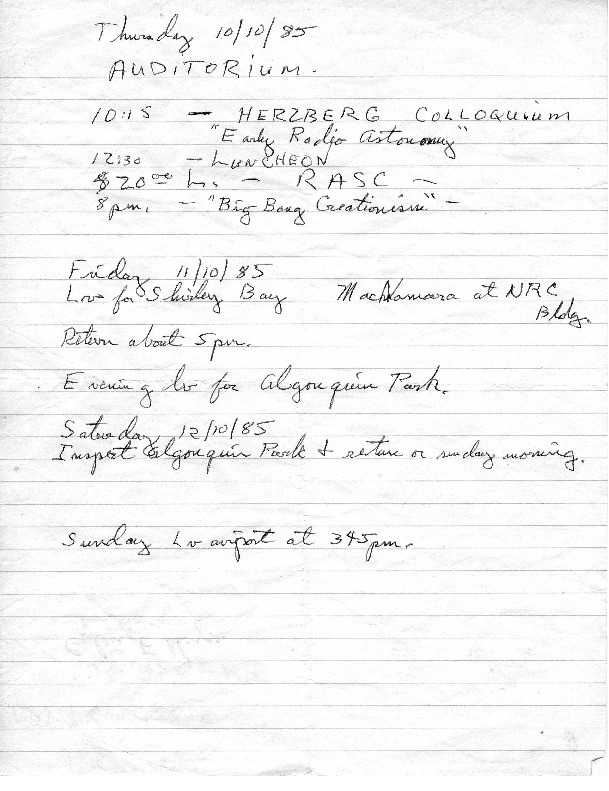 Thursday 10/10/85
AUDITORIUM.
10:15 — HERZBERG COLLOQUIUM
"Early Radio Astonomy"
12:30 — LUNCHEON
$20.00 L. — RASC —
8pm. — "Big Bang Creationism" —
Friday 11/10/85
Lv for Shirley Bay MacNamara at NRC
Bldg.
Return about 5pm.
Evening lv for Algonquin Park.
Saturday 12/10/85
Inspect Algonquin Park & return or sunday morning.
Sunday Lv airport at 345pm.